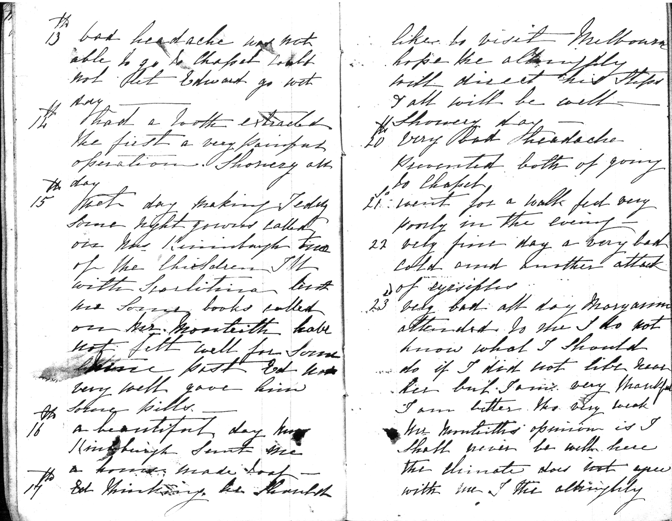 13th bad headache was not
able to go to Chapel could
not let Edward go wet
day
14th I had a tooth extracted
the first a very painful
operation. Showery all
day
15th Wet day making Teddy
some night gowns called
on Mrs Kinniburgh
of the Children Ill
with Scarlitina lent
me some books called
on Mr. Monteith have
not felt well for some
time past Ed not
very well gave him
some pills. —
16th a beautiful day Mrs
sent me
a home made loaf —
17th Ed thinking he should
like to visit Melbourn
hope the almighty
will direct his Steps
& all will be well —
Showery day —
20th very Bad Headache
prevented both of going
to Chapel
21st went for a walk felt very
poorly in the evening —
22 very fine day a very bad
cold and another attack
of
23d very bad all day Maryann
attended to me I do not
know what I should
do if I did not live near
her but I am very thankful
I am better tho very weak
Mr Monteiths opinion is I
shall never be well here
the climate does not agree
with me I the almighty